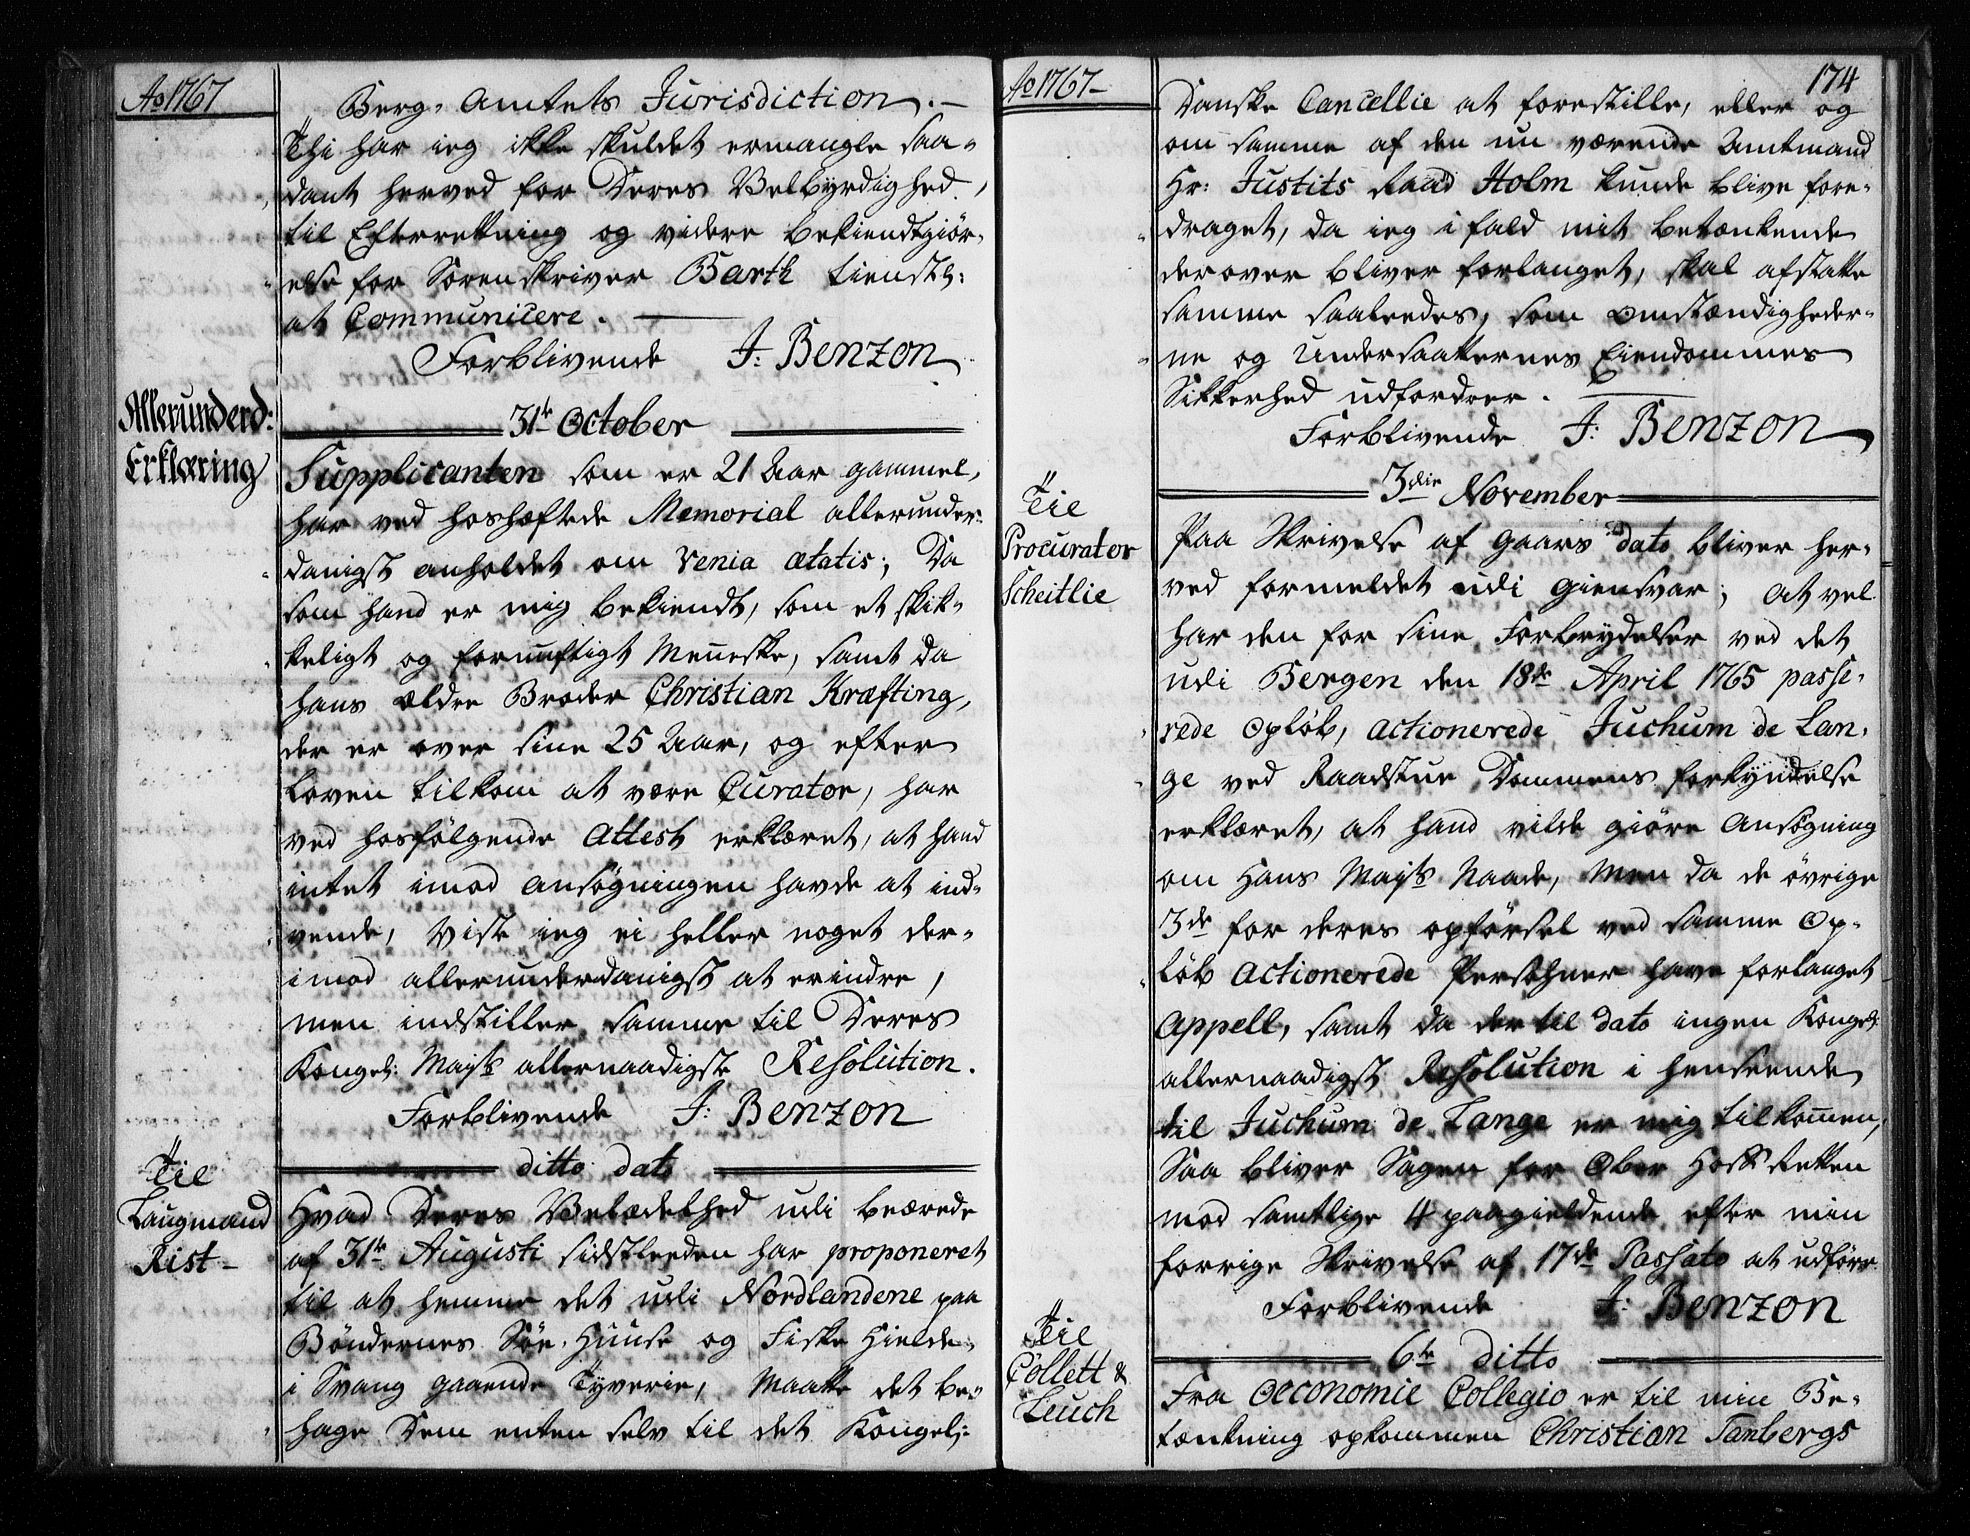 Ao 1767
Berg-Amtets Jurisdiction.
Thi har ieg ikke skuldet ermangle saa-
dant herved for Deres Velbyrdighed,
til Efterretning og videre bekiendtgiør-
else for Sorenskriver Barth tienstl:
at Communicere.
Forblivende J: Benzon
31te October
Allerunderd:
Erklæring
Supplicanten som er 21 Aar gammel,
har ved hoshæftede Memorial allerunder-
danigst anholdet om venia ætatis; Da
som hand er mig bekiendt, som et skik-
keligt og fornuftigt Menneske, samt da
hans ældre Broder Christian Kræfting,
der er over sine 25 Aar, og efter
Loven tilkom at være Curator, har
ved hosfølgende Attest erklæret, at hand
intet imod Ansøgningen havde at ind-
vende, Viste ieg ei heller noget der-
imod allerunderdanigst at erindre,
men indstiller samme til Deres
Kongel: Mayts allernaadigste Resolution.
Forblivende J: Benzon
ditto dato
Til
Laugmand
Rist
Hvad Deres Velædelhed udi beærede
af 31te Augusti sidstleeden har proponeret
til at hemme det udi Nordlandene paa
Bøndernes Søe-Huuse og Fiske Hielde
i Svang gaaende Tyverie, Maatte det be-
hage Dem enten selv til det Kongel:
Ao 1767
174
Danske Cancellie at forestille, eller og
om samme af den nu værende Amtmand
Hr: Justits Raad Holm kunde blive fore-
draget, da ieg i fald mit betænkende
derover bliver forlanget, skal afstatte
samme saaledes, som omstændigheder-
ne og Undersaatternes Eiendommes
Sikkerhed udfordrer.
Forblivende J: Benzon
3die November
Til
Procurator
Scheitlie
Paa Skrivelse af Gaars dato bliver her-
ved formeldet udi Giensvar; At vel
har den for sine Forbrydelser ved det
udi Bergen den 18de April 1765 passe-
rede Opløb, actionerede Juchum de Lan-
ge ved Raadstue Dommens forkyndelse
erklæret, at hand vilde giøre Ansøgning
om Hans Mayts Naade, Men da de øvrige
3de for deres opførsel ved samme Op-
løb Actionerede Persohner have forlanget
Appell, samt da der til dato ingen Kongel:
allernaadigst Resolution i henseende
til Juchum de Lange er mig tilkommen,
Saa bliver Sagen for Ober Hoff Retten
mod samtlige 4 paagieldende efter min
forrige Skrivelse af 17de Passato at udføre
Forblivende J: Benzon
6te ditto
Til
Collett &
Leuch
Fra Oeconomie Collegio er til min Be-
tænkning opkommen Christian Tanbergs